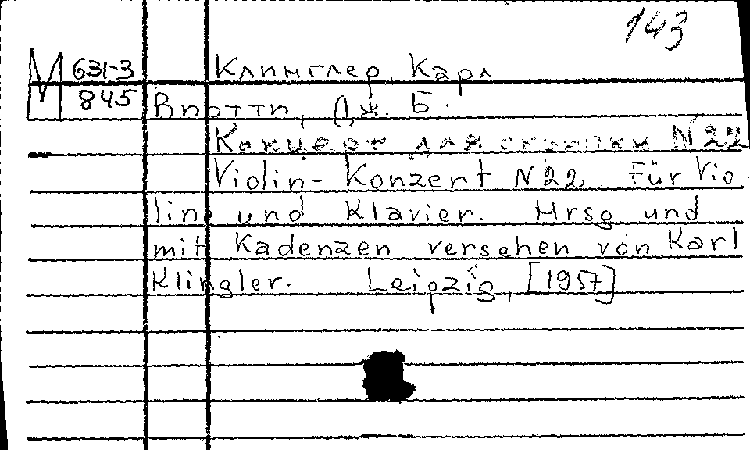 143
М 631-3 Клинглер, Карл
845 Виотти, Дж. Б.
Концерт для скрипки N 22
Violin-Konzert N 22 Für Vio
line und Klavier. Hrsg und
mit Kadenzen versehen von Karl
Klingler. Leipzig, [1957]